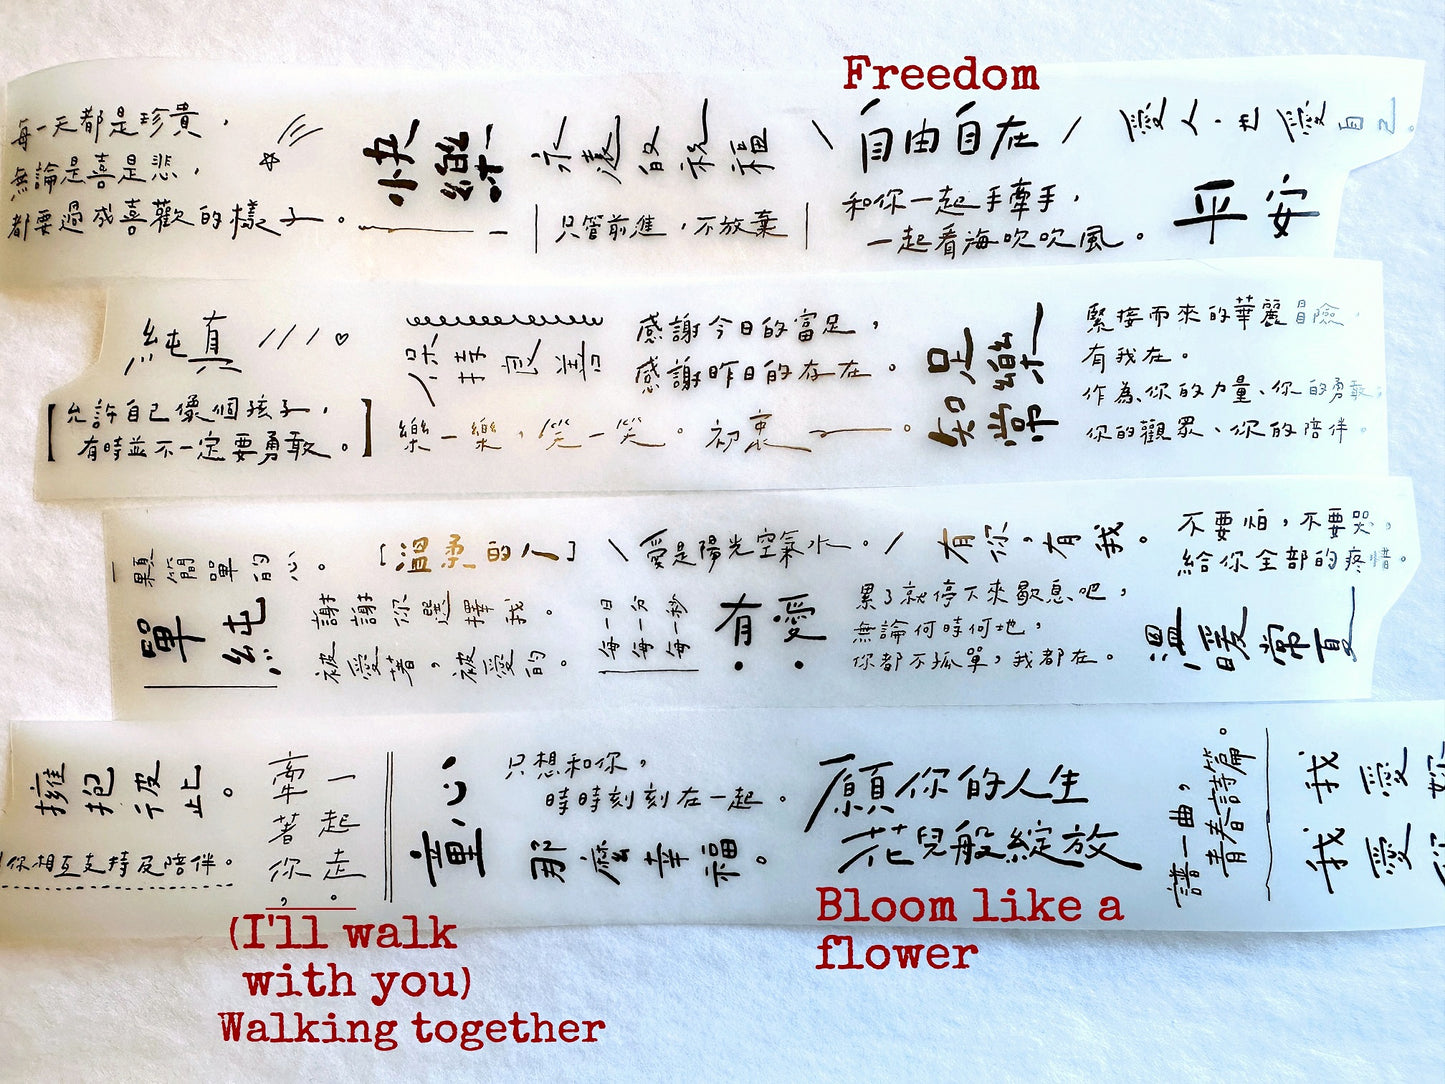 每一天都是珍貴，
無論是喜是悲，
都要過成喜歡的樣子。
快樂
永遠的祝福
只管前進，不放棄
Freedom
自由自在
和你一起手牽手，
一起看海吹吹風。
愛人，也愛自己。
平安
純真
允許自己像個孩子，
有時並不一定要勇敢。
保持良善
樂一樂，笑一笑。初衷
感謝今日的富足，
感謝昨日的存在。
知足常樂
緊接而來的華麗冒險，
有我在。
作為你的力量、你的勇敢，
你的觀眾、你的陪伴。
一顆簡單的心。
單純
[溫柔的人]
謝謝你選擇我。
被愛著，被愛的。
每一日
每一分
每一秒
愛是陽光空氣水。
有愛
有你，有我。
累了就停下來歇息吧，
無論何時何地，
你都不孤單，我都在。
不要怕，不要哭，
給你全部的疼惜。
溫暖常夏
擁抱彼此。
你相互支持及陪伴。
牽著你，
一起走。
(I'll walk
with you)
Walking together
童心
只想和你，
時時刻刻在一起。
那麼幸福。
願你的人生
花兒般綻放
Bloom like a
flower
譜一曲，
青春詩篇。
我愛
我愛你